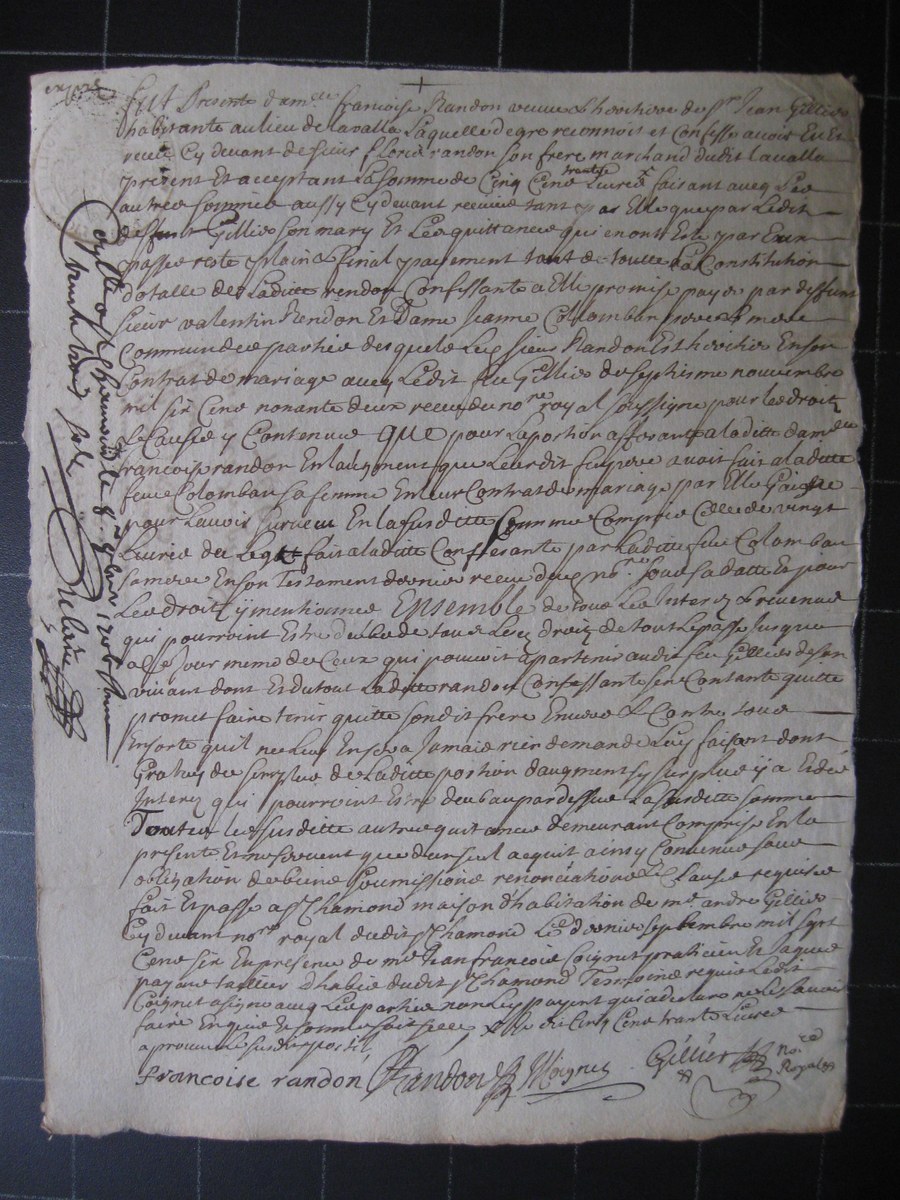 fut Presente dam.lle francoise Randon veuve & heritiere de Sr Jean Gillier
habitante au lieu de lavalla Laquelle de gre reconnoit et Confesse avoir Eu Et
receu Cy devant de sieur fleurie randon son frere marchand dudit lavalla
present Et acceptant La somme de Cinq Cens trante Livres faisant aveq Les
autres sommes aussy Cy devant receues tant par Elle que par Ledit
deffunt Gillier son mary Et Les quittances qui en ont Esté par Eux
passes reste plain & final payement tant de toutte La Constitution
dotalle de Laditte rendon Confessante a Elle promise payer par deffunt
sieur valentin Rendon Et Dame Jeanne Colomban pere & mere
Communs des parties desquels Led sieur Randon Est heritier En son
Contrat de mariage aveq Ledit feu Gillier du septiesme novembre
mil six Cens nonante deux receu du no.re royal soussigne pour les droitz
& Causes y Contenues QUE pour La portion afferante a laditte dam.lle
francoise randon En laugment que Leurdit feu pere avoit fait a laditte
feue Colomban sa femme En leur Contrat de mariage par Elle Gaigne
pour Lavoir survecu En La susditte somme Comprise Celle de vingt
Livres du Legat fait a laditte Confessante par Laditte feue Colomban
sa mere En son Testament dernier receu dud no.re sous sa datte Et pour
Les droits y mentionnes ENSEMBLE de tous Les Interez & revenus
qui pourroint Estre deubs de tous Lesd droitz de tout Le passe Jusques
a Ce Jour meme de Ceux qui pouvoit apartenir audit feu Gillier de son
vivant dont Et du tout Laditte randon Confessante se Contante quitte
promet faire tenir quitte sondit frere Envers & Contre tous
En sorte quil ne Luy En sera Jamais rien demandé Luy faisant dont
Gratuy du surplus de Laditte portion daugment sy surplus y a Et des
Interez qui pourroint Estre deubs au par dessus La susditte somme
Toutes les susdittes autres quitances demeurant Comprises En la
presente Et ne servent que dun seul acquit ainsy Convenu sous
obligation de biens soumissions renonciations & Clauses requises
fait Et passe a St Chamond maison dhabitation de m.e andre Gillier
Cy devant no.re royal dudit St Chamond Le dernier septembre mil sept
Cens six En presence de m.e Jean francois Coignet praticien Et Jaques
payant tallieur dhabis dudit St Chamond Tesmoins requis Ledit
Coignet a signe aveq Les parties non Led payent qui a declare ne Le savoir
faire Enquis Et sommé
aprouve Le susdit
francoise randon Randon Coignet Gillier no.re
Royal